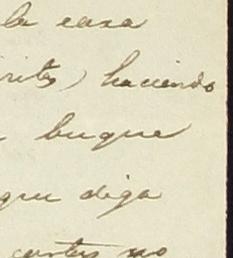 la casa
ritos) haciendo
buque
que diga
cartas no